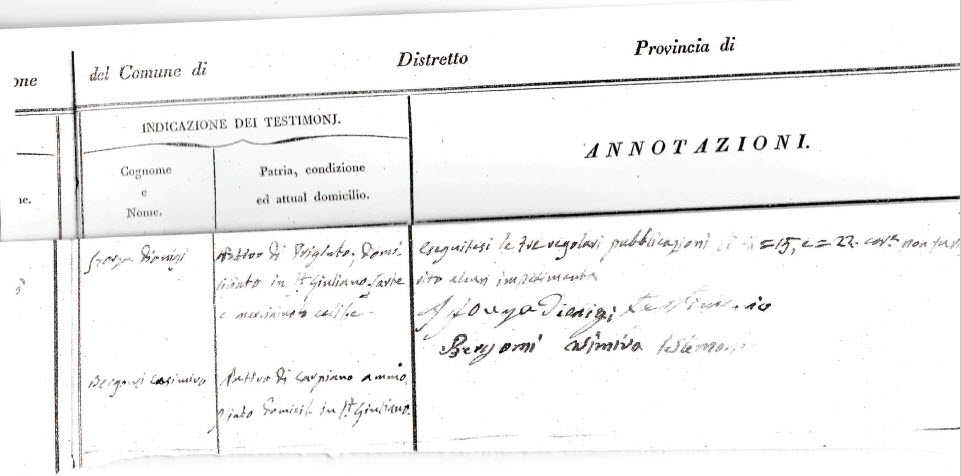 one
del Comune di
Distretto
Provincia di
INDICAZIONE DEI TESTIMONJ.
ANNOTAZIONI.
ne.
Cognome
e
Nome.
Patria, condizione
ed attual domicilio.
Sforza Dionigi
Nattivo di Triglato, Domi-
ciliato in Sn Giuliano, Sarte
e
Eseguitesi le tre regolari pubblicazioni =15, e = 22. corte non fu
rito alcun impedimento
Sforza Dionigi testimonio
Bergomi Casimiro testemoni
Bergomi Casimiro
Nattivo di Carpiano ammo-
gliato Domicil. in Sn Giuliano.